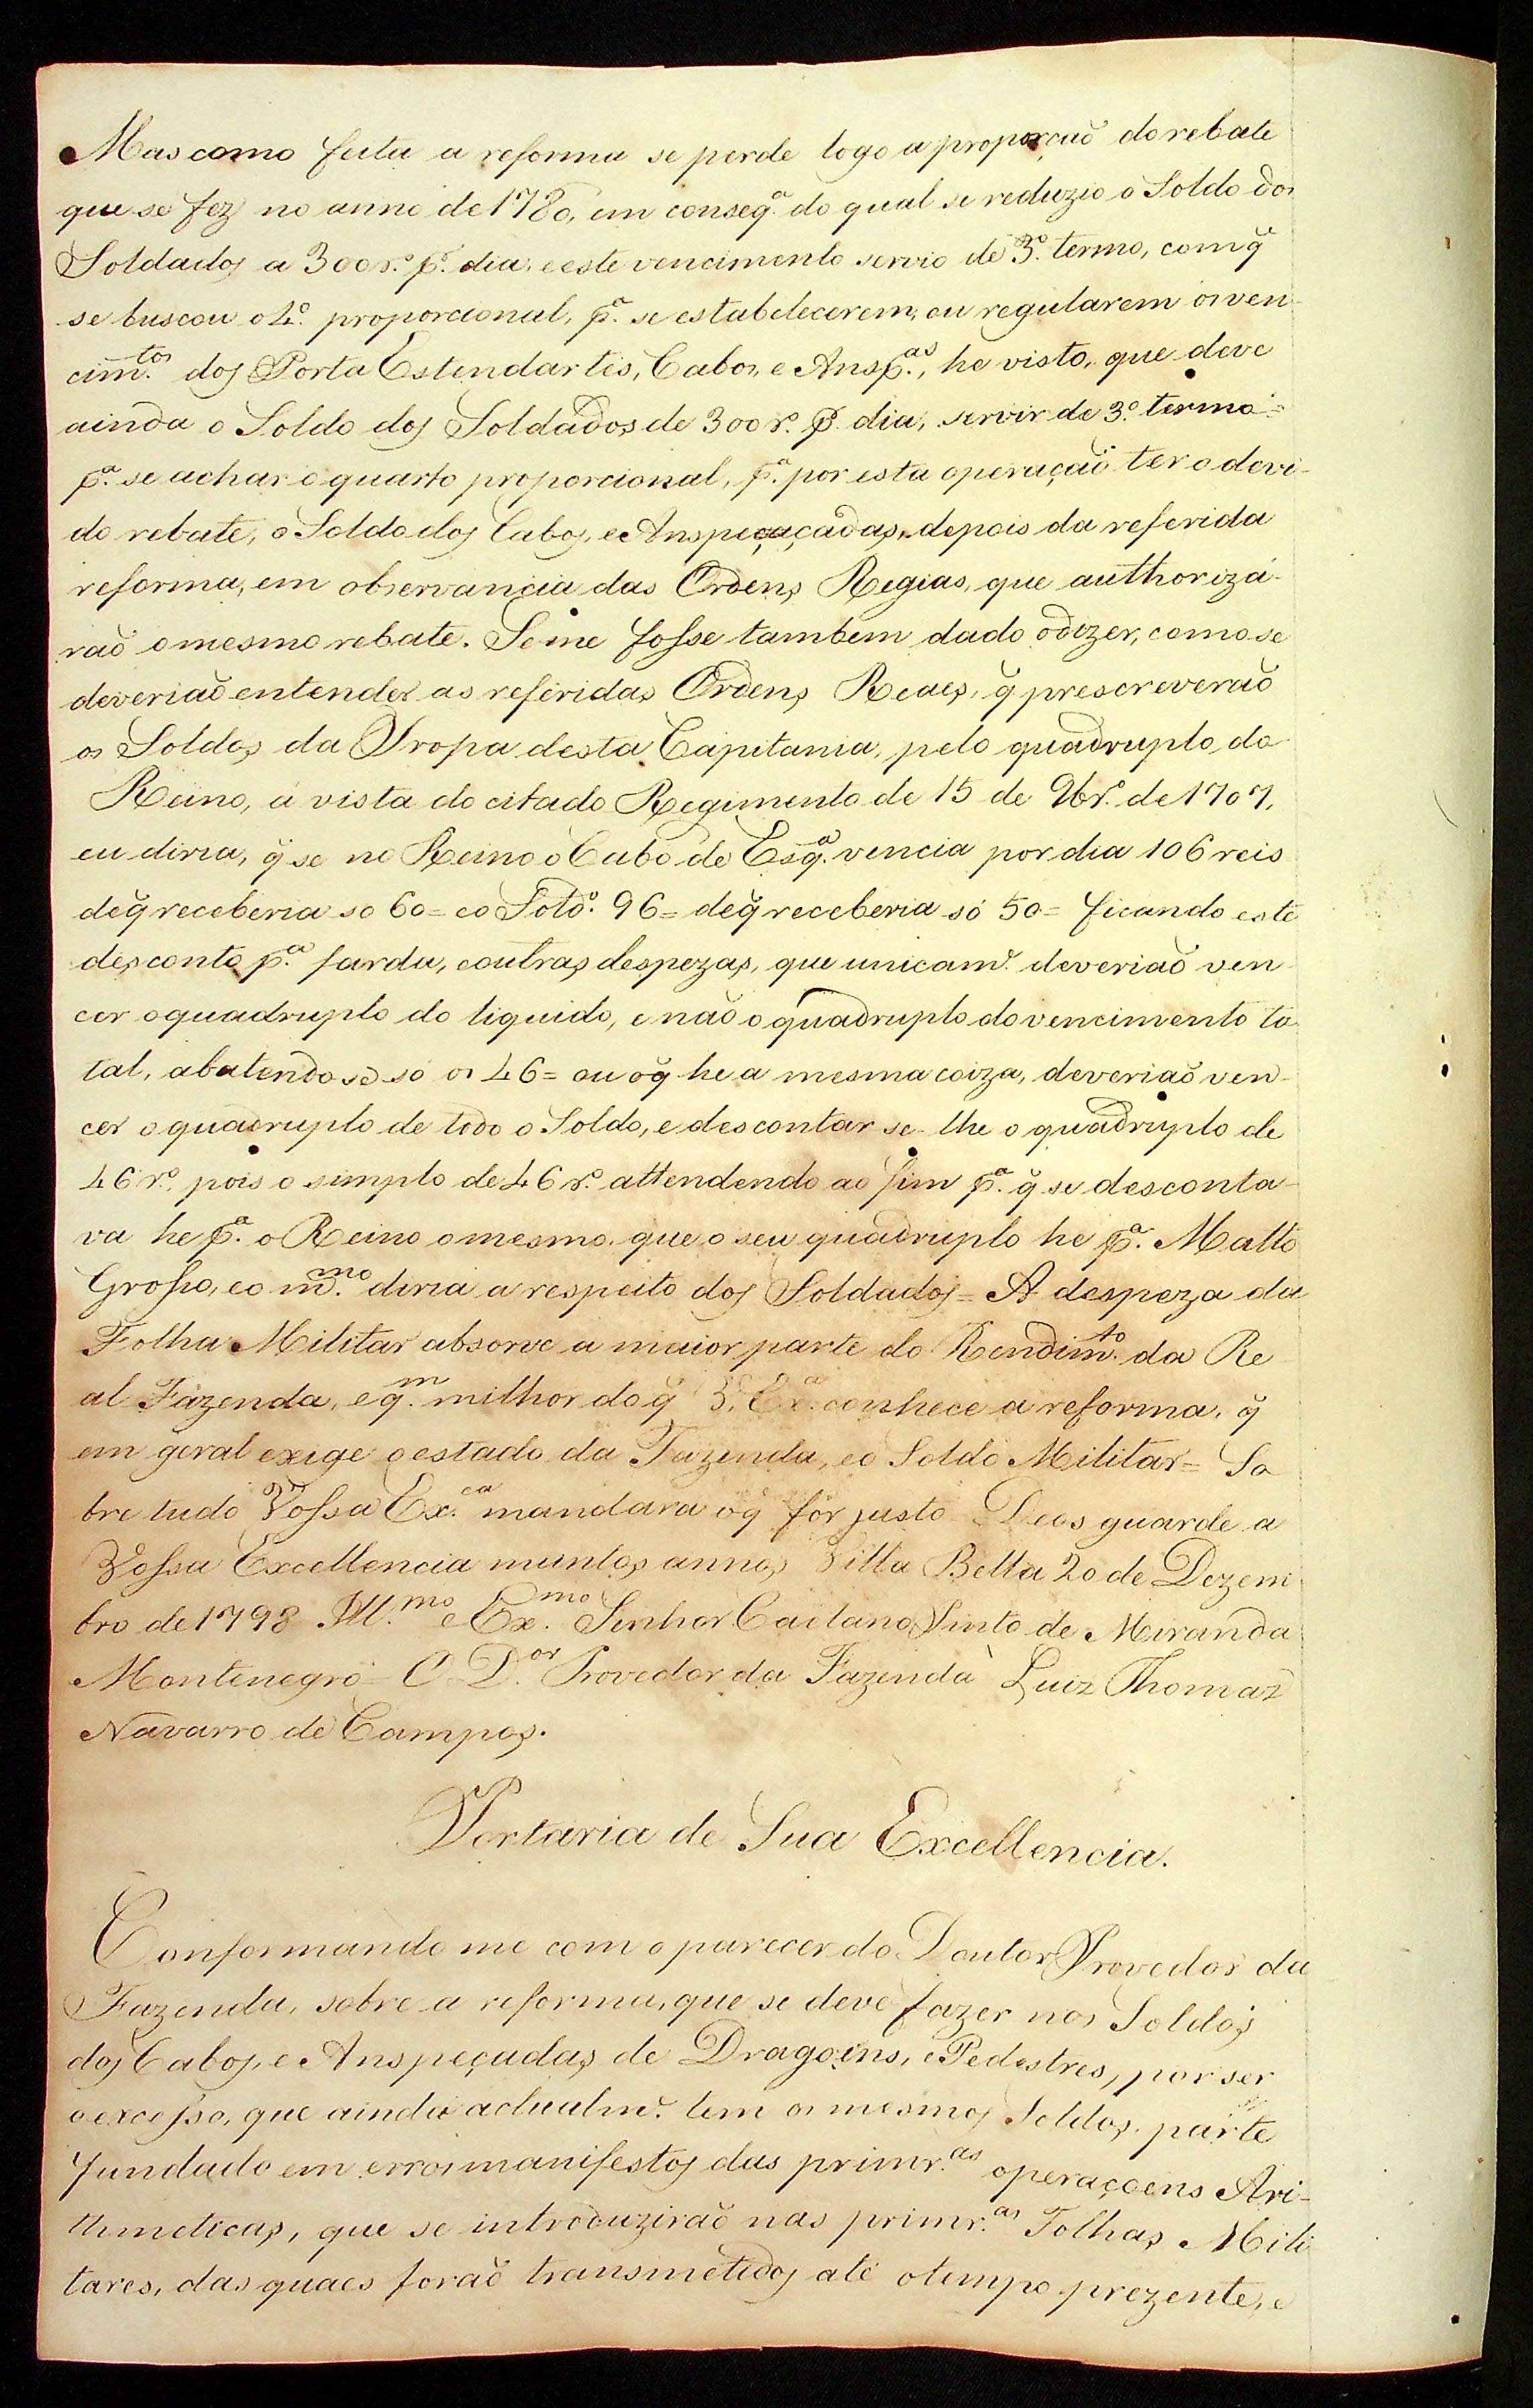 Mas como feita a reforma se perde logo a proporçaõ do rebate
que se fez no anno de 1780, em conseq.ª do qual se reduzio o Soldo dos
Soldados a 300 r.s p.r dia, e este vencimento servio de 3.º termo, com q̃
se buscou o 4.º proporcional, p.ª se estabelecerem, ou regularem os ven-
cim.tos dos Porta Estendartes, Cabos, e Ansp.as, he visto, que deve
ainda o Soldo dos Soldados de 300 r.s p.r dia, servir de 3.º termo
p.ª se achar o quarto proporcional, p.ª por esta operaçaõ ter o devi-
do rebate, o Soldo dos Cabos, e Anspeçaçadas, depois da referida
reforma, em observancia das Ordens Regias, que authorizá-
raõ o mesmo rebate. Se me fosse tambem dado o dizer, como se
deveriaõ entender as referidas Ordens Reaes, q̃ prescreveraõ
os Soldos da Tropa desta Capitania, pelo quadruplo do
Reino, á vista do citado Regimento de 15 de 9br.º de 1707,
eu diria, q̃ se no Reino o Cabo de Esq.ª vencia por dia 106 reis
de q̃ receberia só 60 = e o Sold.º 96 = de q̃ receberia só 50 = ficando este
desconto p.ª farda, e outras despezas, que unicam.e deveriaõ ven-
cer o quadruplo do liquido, e naõ o quadruplo do vencimento to-
tal, abatendo se só os 46 = ou o q̃ he a mesma coiza, deveriaõ ven-
cer o quadruplo de todo o Soldo, e descontar se-lhe o quadruplo de
46 r.s, pois o simplo de 46 r.s attendendo ao fim p.ª q̃ se desconta-
va he p.ª o Reino o mesmo, que o seu quadruplo he p.ª Matto
Grosso, e o m.mo diria a respeito dos Soldados = A despeza da
Folha Militar absorve a maior parte do Rendim.to da Re-
al Fazenda, e q.m milhor do q̃ V. Ex.ª conhece a reforma, q̃
em geral exige o estado da Fazenda, e o Soldo Militar = So-
bre tudo Vossa Ex.ca mandara o q̃ for justo Deos guarde a
Vossa Excellencia muntos annos Villa Bella 20 de Dezem-
bro de 1798 Ill.mo e Ex.mo Senhor Caetano Pinto de Miranda
Montenegro = O D.or Provedor da Fazenda Luiz Thomaz
Navarro de Campos.
Portaria de Sua Excellencia.
Conformando me com o parecer do Doutor Provedor da
Fazenda, sobre a reforma, que se deve fazer nos Soldos
dos Cabos, e Anspeçadas de Dragoens, e Pedestres, por ser
o excesso, que ainda actualm.e tem os mesmos Soldos, parte
fundado em erros manifestos das primr.as operaçoens Ari-
thmeticas, que se introduziraõ nas primr.as Folhas Mili-
tares, das quaes foraõ transmetidos até o tempo prezente, e